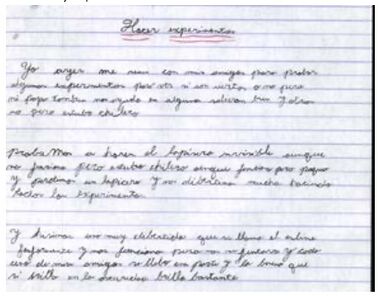 Hacer experimentos
Yo ayer me reuni con mis amigos para probar
algunos experimentos para ver si son ciertos o no pero
mi papa tambien nos ayudo en algunos salieron bien y otros
no pero estubo chilero
probaMos a hacer el lapicero invisible aunque
no funciono pero estubo chilero aunque funciono pero poquito
y perdimos un lapicero y nos divertimos mucho haciendo
todos los experimentos
y hicimos uno muy divertido que se llama el
y nos funciono pero no y cada
uno de mis amigos se llebo un poco y lo bueno que
si brilla en la oscuridad brilla bastante